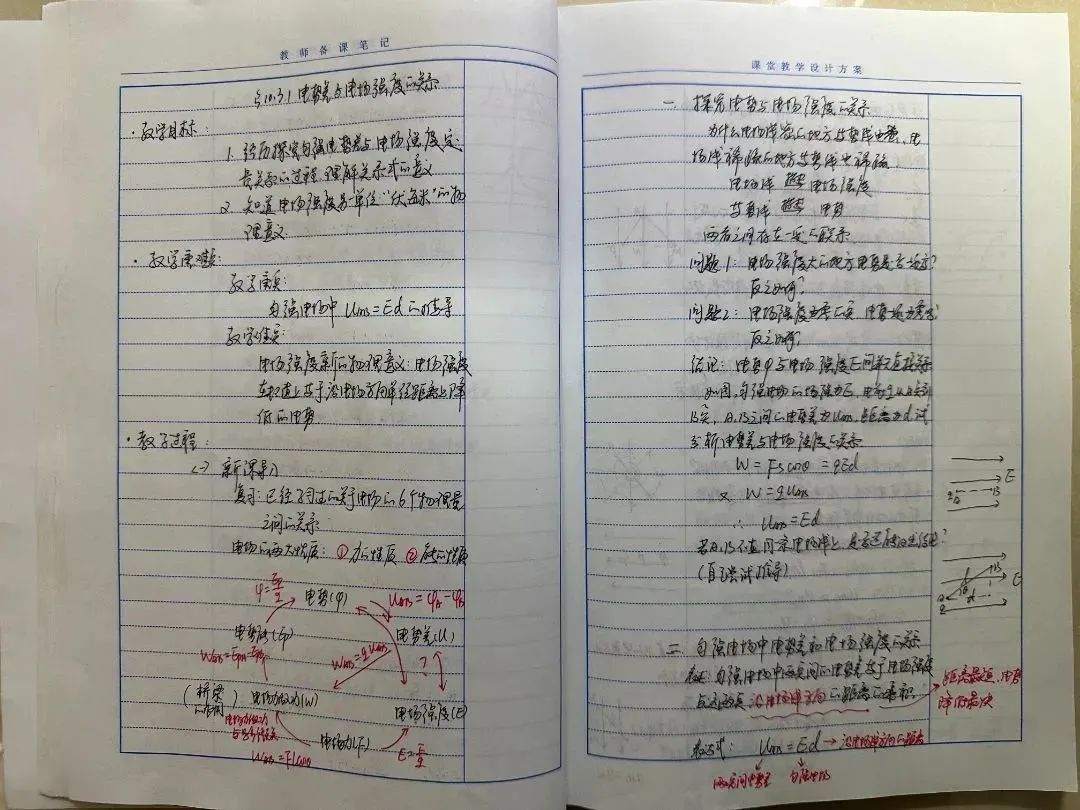 教师备课笔记
§10.3.1 电势差与电场强度的关系
·教学目标:
1. 经历探究匀强电势差与电场强度定
量关系的过程,理解关系式的意义
2. 知道电场强度另一单位“伏每米”的物
理意义
·教学重难点:
教学重点:
匀强电场中 UAB=Ed的推导
教学难点:
电场强度新的物理意义:电场强度
在数值上等于沿电场方向单位距离上降
低的电势
·教学过程:
(一) 新课导入
复习:已经学过的关于电场的6个物理量
之间的关系
电场的两大性质:①力的性质 ②能的性质
φ=Ep/q
电势(φ)
UAB=φA-φB
电势能(Ep)
电势差(U)
WAB=EpA-EpB
WAB=qUAB
?
(桥梁
作用)
电场力做功(W)
电场强度(E)
电场力(F)
WAB=Flcosθ
E=F/q
课堂教学设计方案
一、探究电势与电场强度的关系
为什么电场线密的地方等势线也密,电
场线稀疏的地方等势线也稀疏
电场线 描述 电场强度
等势线 描述 电势
两者之间存在一定的联系
问题1:电场强度大的地方电势是否一定高?
反之如何?
问题2:电场强度为零的点,电势是否为零?
反之如何?
结论:电势φ与电场强度E间并无直接关系
如图,匀强电场的场强为E,电荷q从A点到
B点,A、B之间的电势差为UAB,距离为d,试
分析电势差与电场强度的关系
W=Fscosθ=qEd
又 W=qUAB
∴ UAB=Ed
若A、B不在同一条电场线上,是否还能得出结论?
(自己尝试推导)
E
A
B
E
B
A
d
二、匀强电场中电势差和电场强度的关系
表述:匀强电场中两点间的电势差等于电场强度
与这两点沿电场线方向的距离的乘积
距离最短,电势
降落最快
表达式: UAB=Ed→沿电场线方向的距离
两点间电势差
匀强电场